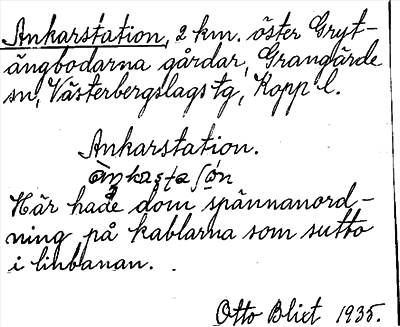 Ankarstation, 2 km. öster Gryt-
ängbodarna gårdar, Grangärde
sn, Västerbergslags tg, Kopp l.
Ankarstation.
Här hade dom spännanord-
ning på kablarna som sutto
i linbanan.
Otto Blixt 1935.